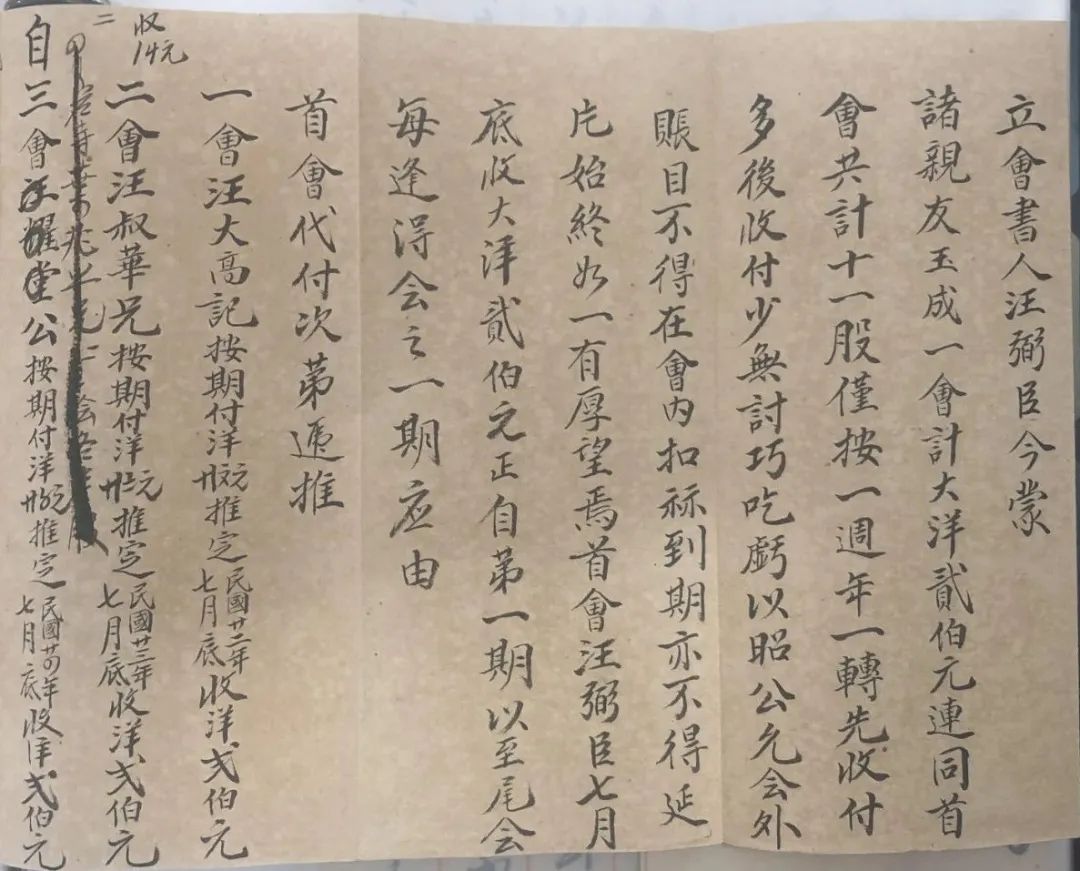 立會書人汪弼臣今蒙
諸親友玉成一會計大洋貳伯元連同首
會共計十一股僅按一週年一轉先收付
多後收付少無討巧吃虧以昭公允会外
賬目不得在會內扣祘到期亦不得延
圪始終如一有厚望焉首會汪弼臣七月
底收大洋貳伯元正自第一期以至尾会
每逢得会之一期应由
首會代付次第遞推
一會汪大高記按期付洋元推定民國廿二年七月底收洋弍伯元
收14元
二會汪叔華兄按期付洋元推定民國廿三年七月底收洋弍伯元
二
三會汪耀堂公按期付洋元推定民國廿四年七月底收洋弍伯元
自